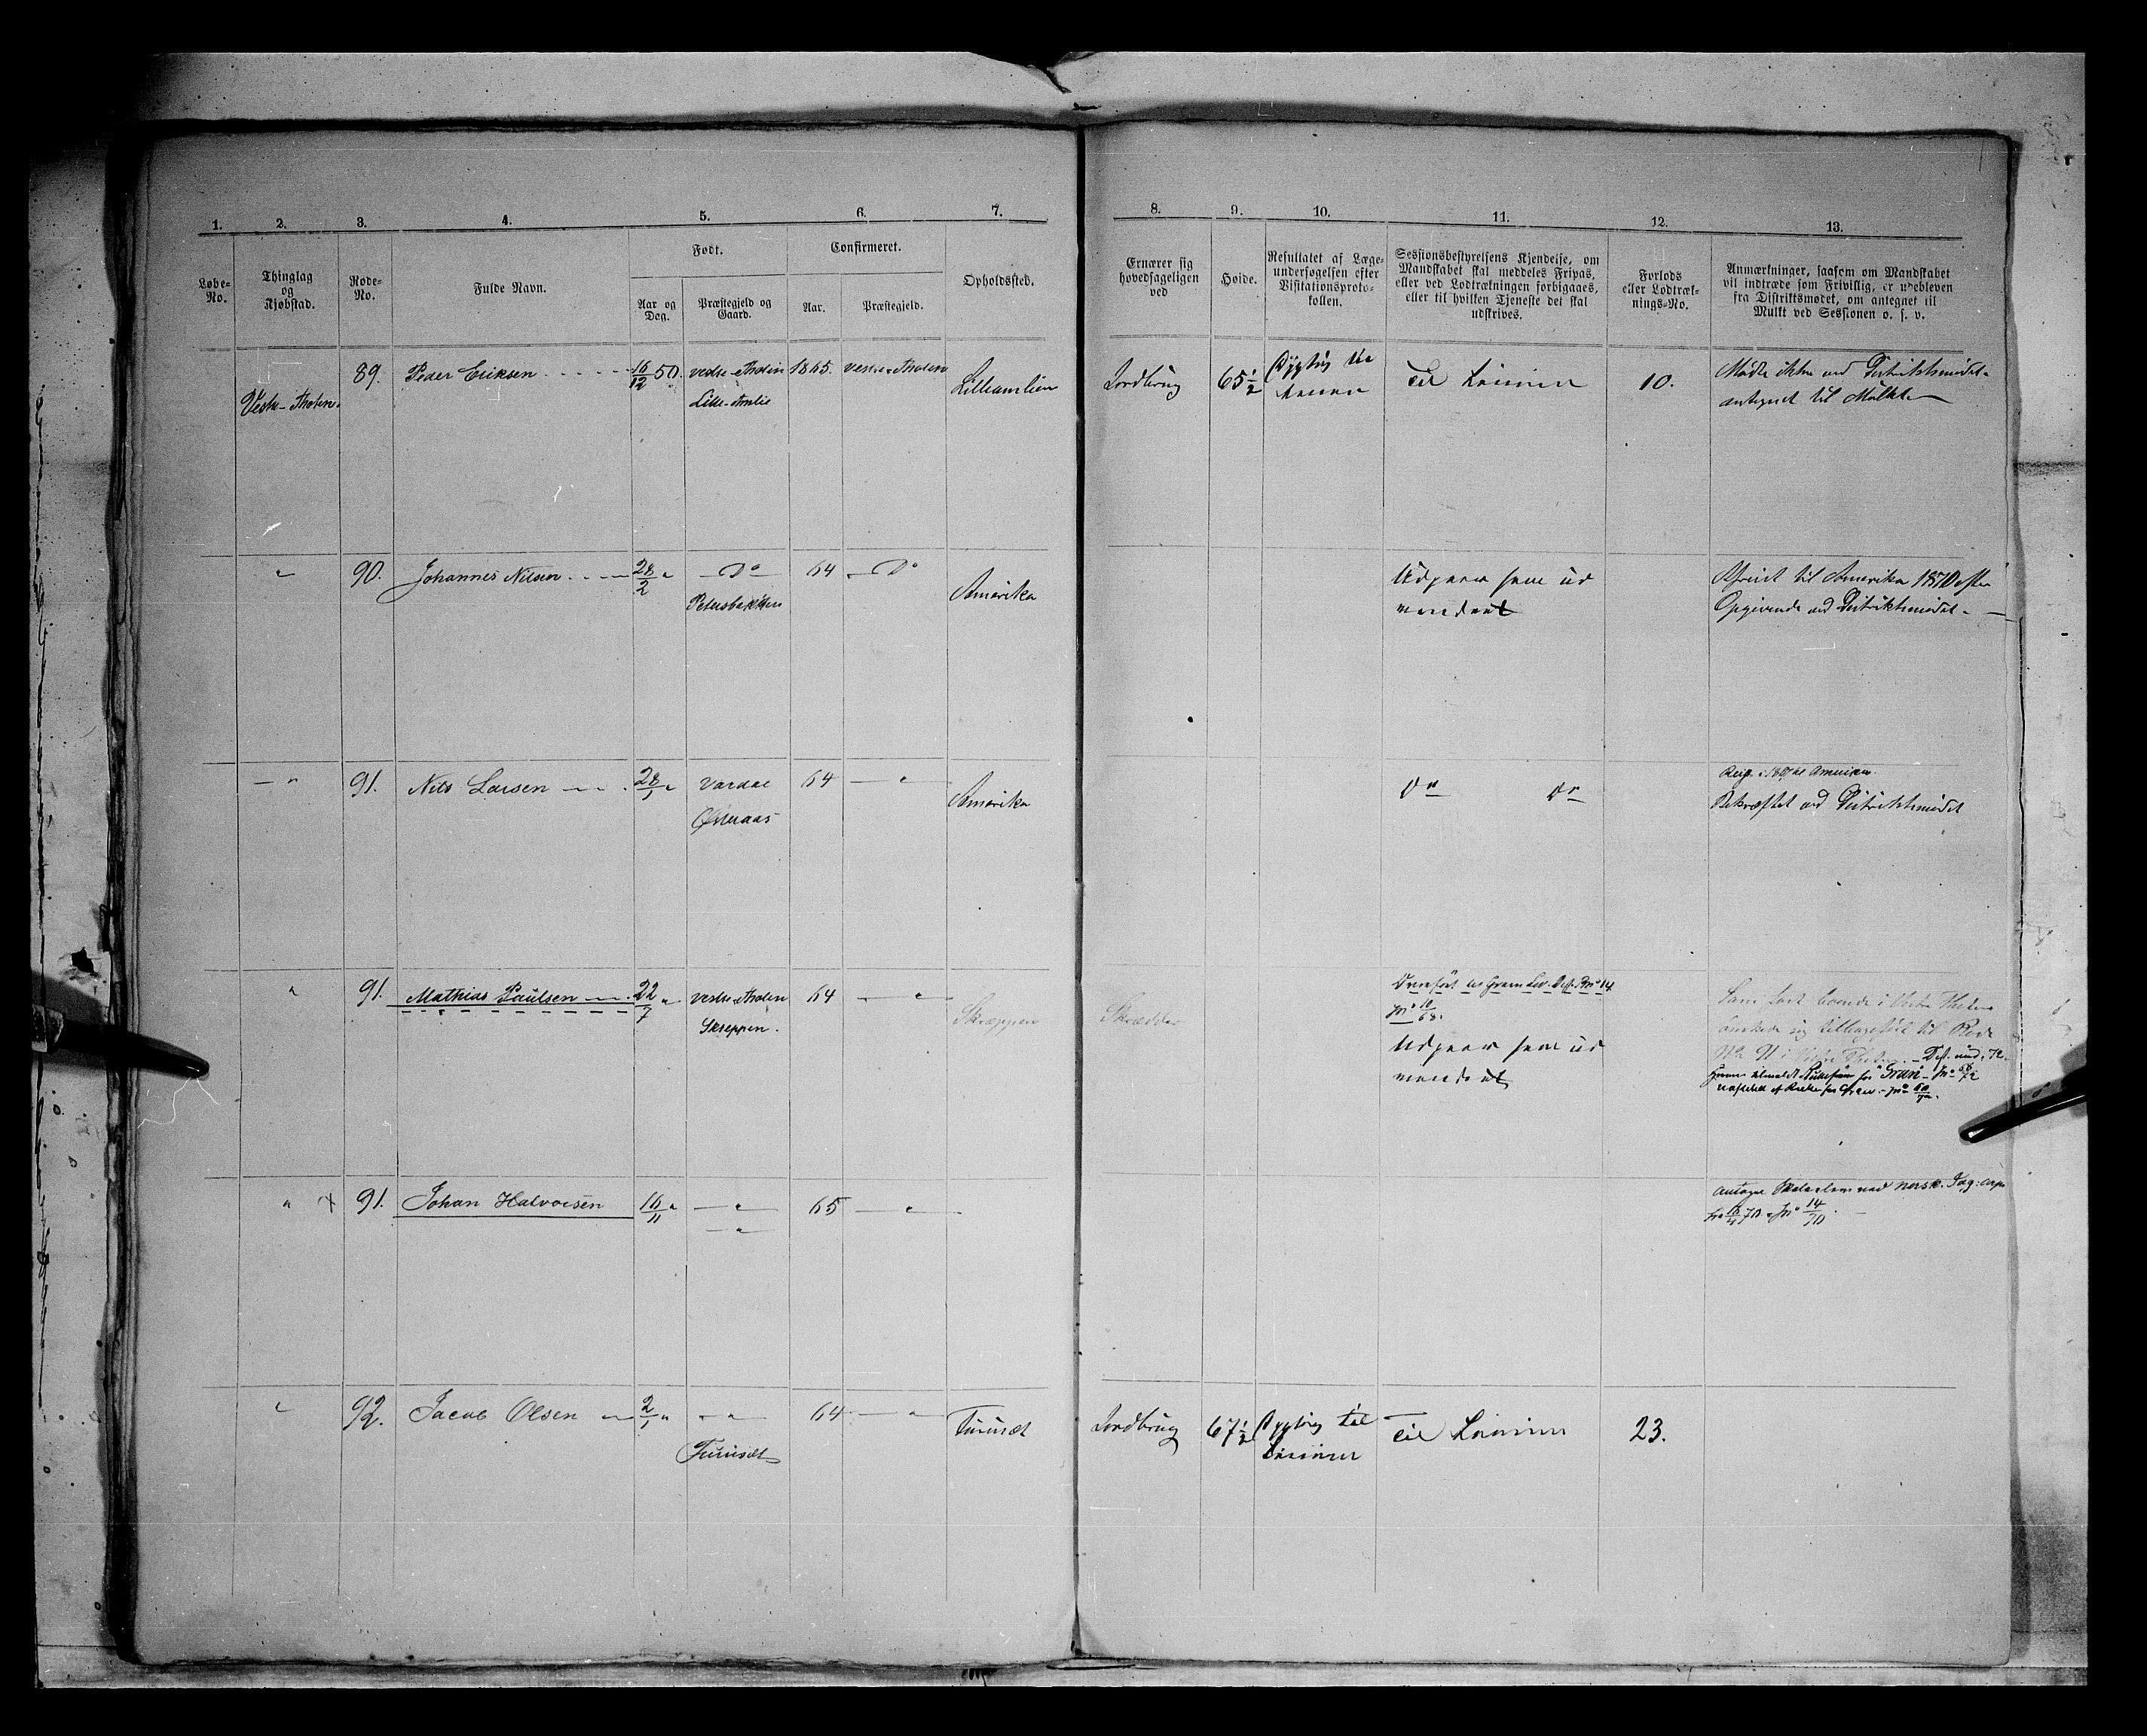 1. 2. 3. 4. 5. 6. 7. 8. 9. 10. 11. 12. 13.
Løbe-
No.
Thinglag
og
Kjøbstad.
Rode-
No.
Fulde Navn.
Født.
Aar og
Dag.
Præstegjeld og
Gaard.
Confirmeret.
Aar.
Præstegjeld.
Opholdssted.
Ernærer sig
hovedsageligen
ved
Høide.
Resultatet af Læge-
undersøgelsen efter
Visitationsproto-
kollen.
Sessionsbestyrelsens Kjendelse, om
Mandskabet skal meddeles Fripas,
eller ved Lodtrækningen forbigaaes,
eller til hvilken Tjeneste det skal
udskrives.
Forlods
eller Lodtræk-
nings-No.
Anmærkninger, saasom om Mandskabet
vil indtræde som Frivillig, er udebleven
fra Distriktsmødet, om antegnet til
Mulkt ved Sessionen o. s. v.
Vestre-Thoten. 89. Peder Eriksen 16/12 50. vestre-Thoten 1865. vestre-Thoten Lilleamlien Jordbrug 65 1/2 Dygtig til Til Linien 10. Mødte ikke ved Distriktsmødet.
Lille-Amlie antegnet til Mulkt
" 90. Johannes Nilsen 28/2 " Do 64 Do Amerika Udgaar som ud Afreist til Amerika 1870 efter
Petersbakken vandret Opgivende ved Distriktsmødet.
" 91. Nils Larsen 28/1 " Vardal 64 " Amerika Do Do Reist i 1867 til Amerika.
Østeraas Bekræftet ved Distriktsmødet
" 91. Mathias Paulsen 22/7 " vestre-Thoten 64 " Skræppen Skrædder Overført til Gran
Skreppen. 10/68. Udgaar som ud
vandret
" 91. Johan Halvorsen 16/11 " " 65 " antagen Skoleelev ved norsk. Jæg: corps
" 14/70
" 92. Jacob Olsen 2/1 " " 64 " Furuset Jordbrug 67 1/2 Dygtig til Til Linien 23.
Furuset Linien